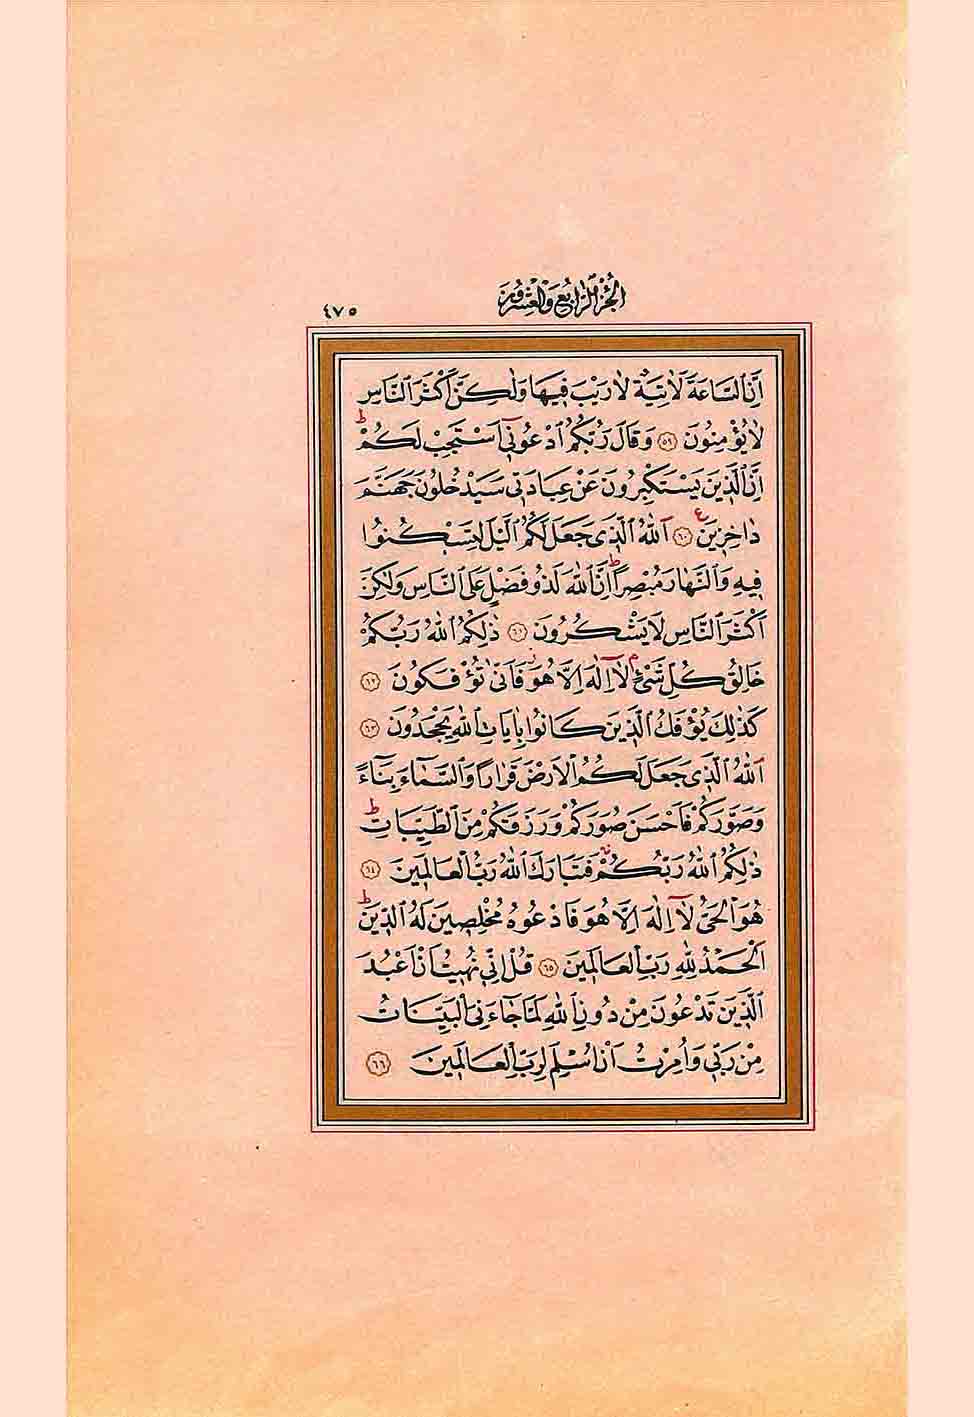 الجزء الرابع والعشرون
٤٧٥
اِنَّ السَّاعَةَ لَاٰتِيَةٌ لَا رَيْبَ فٖيهَا وَلٰكِنَّ اَكْثَرَ النَّاسِ
لَا يُؤْمِنُونَ ﴿٥٩﴾ وَقَالَ رَبُّكُمُ ادْعُونٖٓي اَسْتَجِبْ لَكُمْۜ
اِنَّ الَّذٖينَ يَسْتَكْبِرُونَ عَنْ عِبَادَتٖي سَيَدْخُلُونَ جَهَنَّمَ
دَاخِرٖينَ ﴿٦٠﴾ اَللّٰهُ الَّذٖي جَعَلَ لَكُمُ الَّيْلَ لِتَسْكُنُوا
فٖيهِ وَالنَّهَارَ مُبْصِرًاۜ اِنَّ اللّٰهَ لَذُو فَضْلٍ عَلَى النَّاسِ وَلٰكِنَّ
اَكْثَرَ النَّاسِ لَا يَشْكُرُونَ ﴿٦١﴾ ذٰلِكُمُ اللّٰهُ رَبُّكُمْ
خَالِقُ كُلِّ شَيْءٍۢ لَٓا اِلٰهَ اِلَّا هُوَۘ فَاَنّٰى تُؤْفَكُونَ ﴿٦٢﴾
كَذٰلِكَ يُؤْفَكُ الَّذٖينَ كَانُوا بِاٰيَاتِ اللّٰهِ يَجْحَدُونَ ﴿٦٣﴾
اَللّٰهُ الَّذٖي جَعَلَ لَكُمُ الْاَرْضَ قَرَارًا وَالسَّمَٓاءَ بِنَٓاءً
وَصَوَّرَكُمْ فَاَحْسَنَ صُوَرَكُمْ وَرَزَقَكُمْ مِنَ الطَّيِّبَاتِۜ
ذٰلِكُمُ اللّٰهُ رَبُّكُمْۚ فَتَبَارَكَ اللّٰهُ رَبُّ الْعَالَمٖينَ ﴿٦٤﴾
هُوَ الْحَيُّ لَٓا اِلٰهَ اِلَّا هُوَ فَادْعُوهُ مُخْلِصٖينَ لَهُ الدّٖينَۜ
اَلْحَمْدُ لِلّٰهِ رَبِّ الْعَالَمٖينَ ﴿٦٥﴾ قُلْ اِنّٖي نُهٖيتُ اَنْ اَعْبُدَ
الَّذٖينَ تَدْعُونَ مِنْ دُونِ اللّٰهِ لَمَّا جَٓاءَنِيَ الْبَيِّنَاتُ
مِنْ رَبّٖي وَاُمِرْتُ اَنْ اُسْلِمَ لِرَبِّ الْعَالَمٖينَ ﴿٦٦﴾